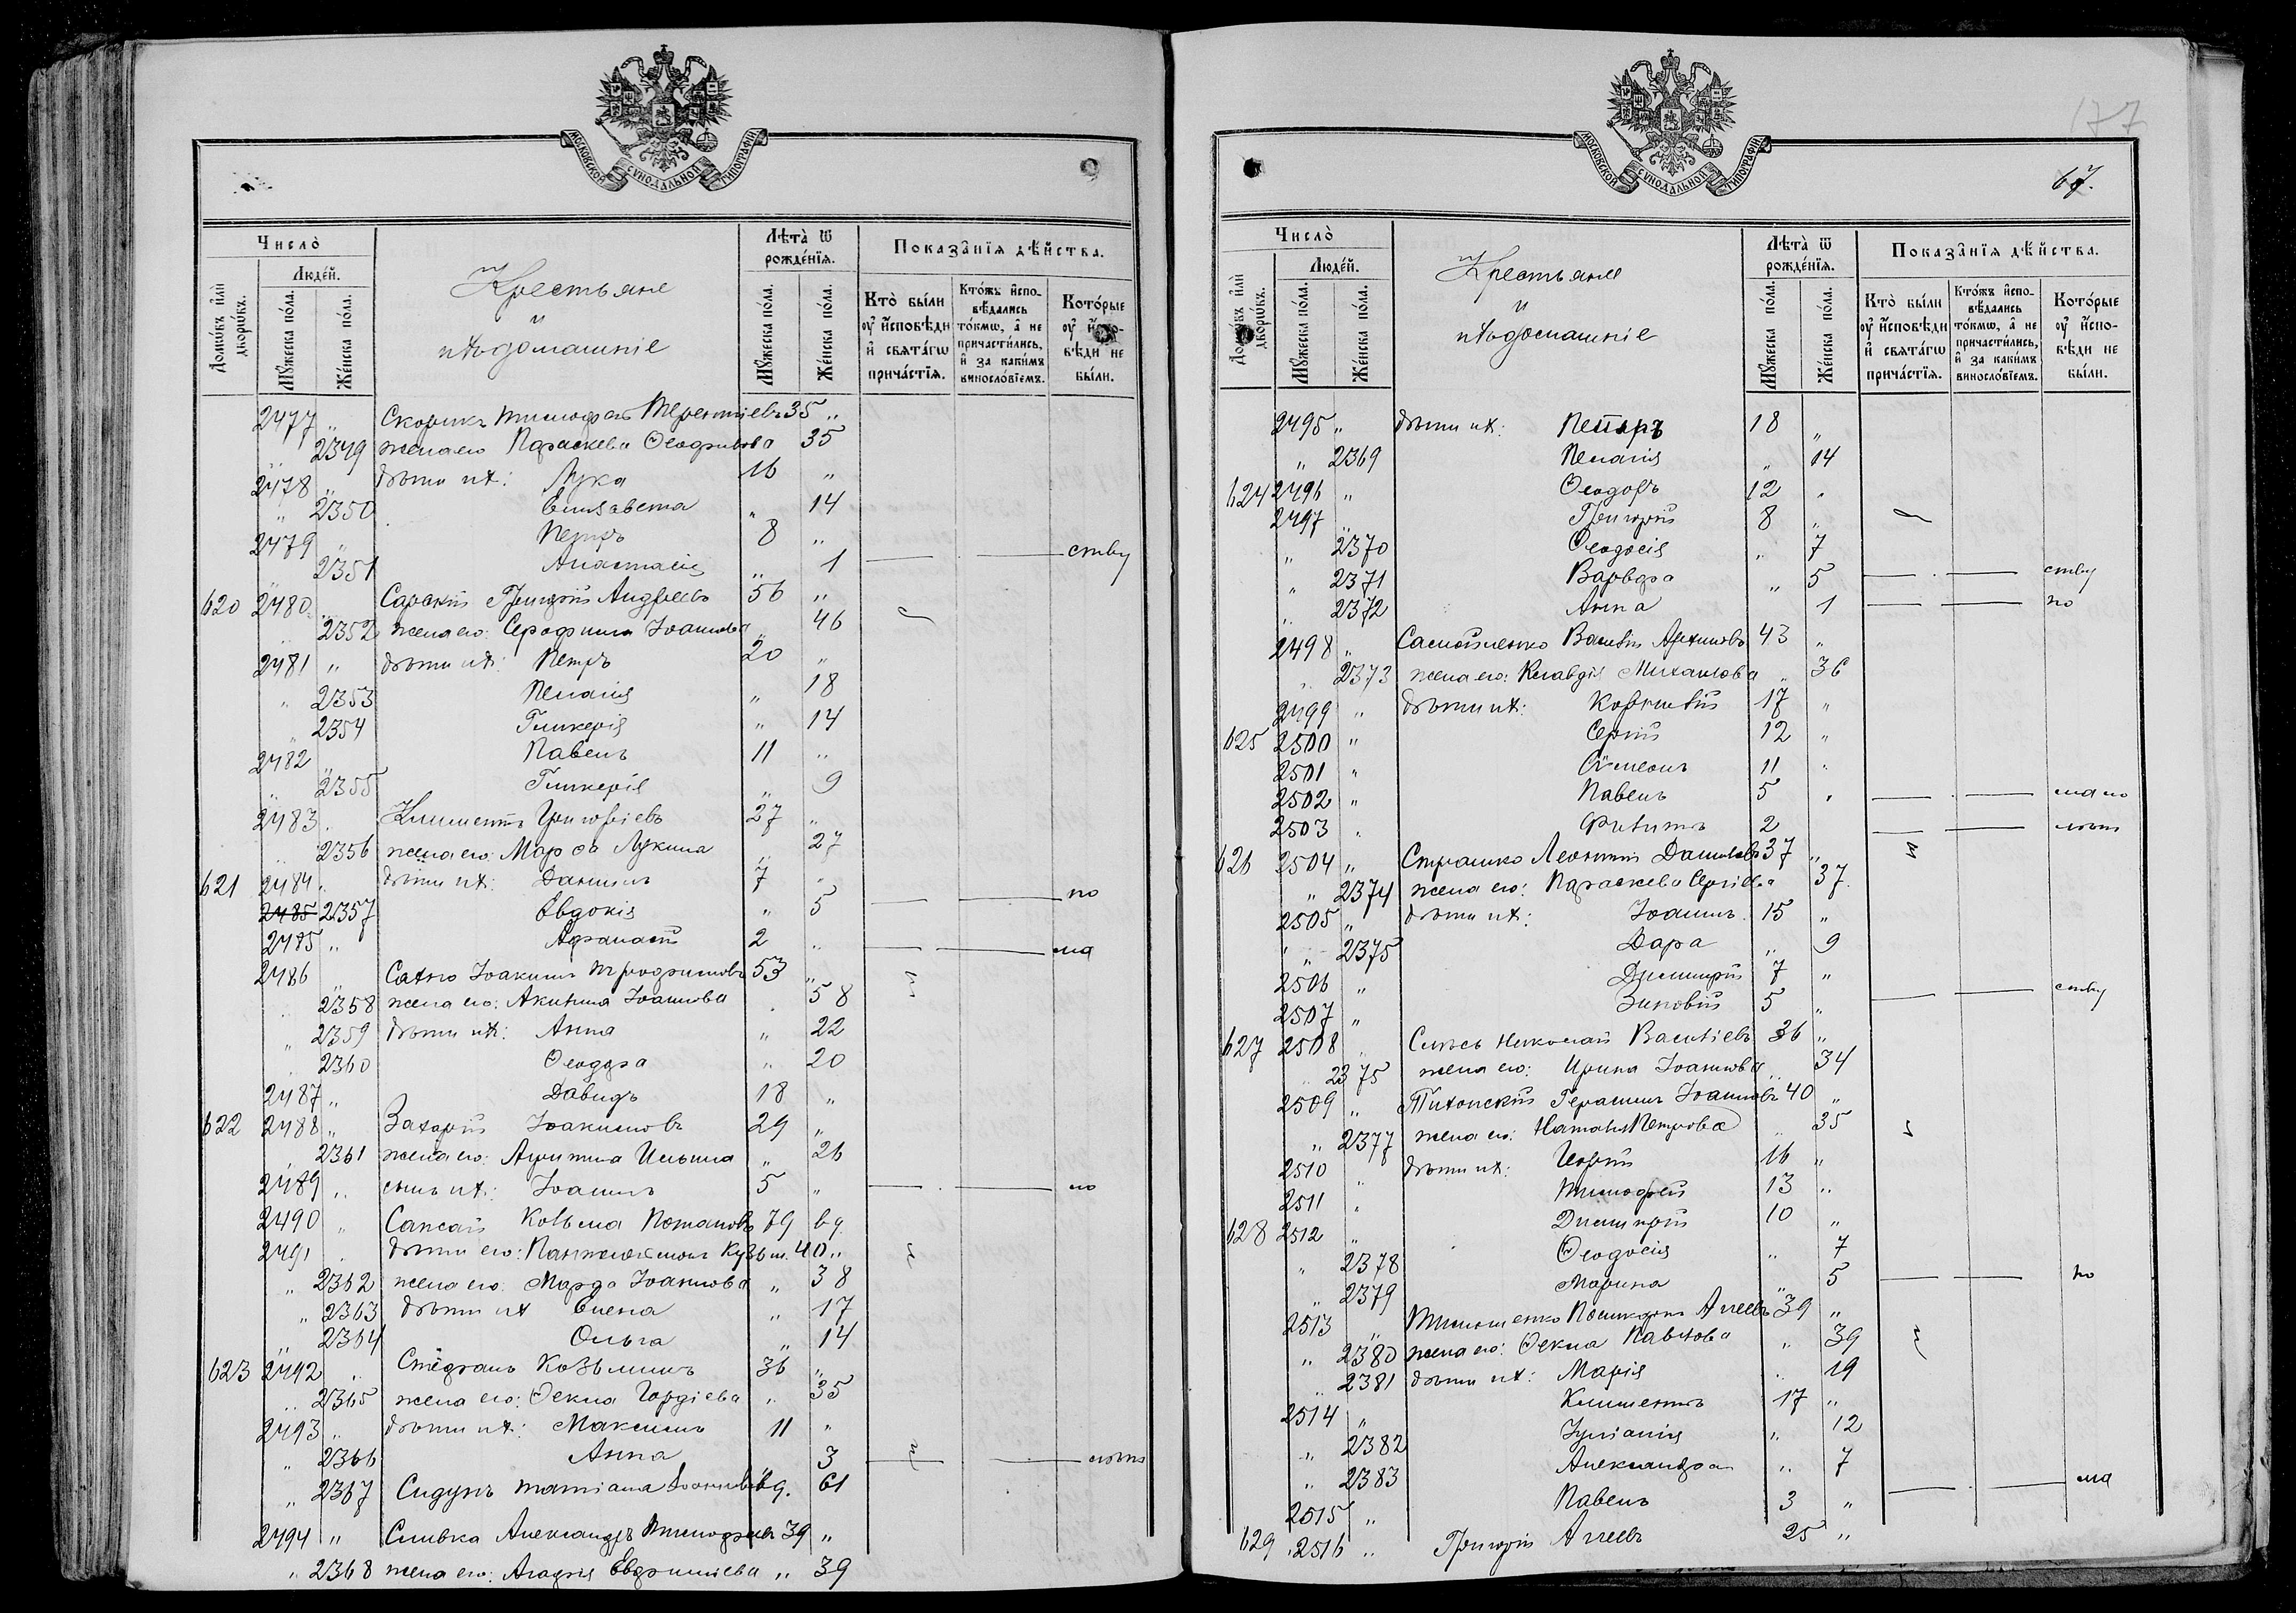 МОСКОВСКОЙ СѴНОДАЛЬНОЙ ТИПОГРАФІИ
Число̀
Людє́й.
Домѡ́въ и҆лѝ дворѡ́въ.
Мꙋ́жеска по́ла.
Же́нска по́ла.
Крестьяне
и
ихъ домашніе
Лѣ́та ѿ рожде́нїѧ.
Мꙋ́жеска по́ла.
Же́нска по́ла.
Показа̂нїѧ дѣ́йства.
Кто̀ бы́ли ᲂу҆ и҆́сповѣди и҆ свѧта́гѡ прича́стїѧ.
Кто́жъ и҆спо-вѣ́дались то́кмѡ, а҆ не причасти́лись, и҆ за каки́мъ винослові́емъ.
Кото́рые ᲂу҆ и҆́спо-вѣди не бы́ли.
2477 „ Скорикъ Тимофей Терентіевъ 35 „
„ 2349 жена его Параскева Ѳеофилова 35
2478 „ дѣти ихъ: Лука 16 „
„ 2350 Елисавета „ 14
2479 „ Петръ 8 „
2351 Анастасія „ 1 ству
620 2480 „ Сарскій Григорій Андреевъ 56 „
„ 2352 жена его: Серафима Іоаннова „ 46
2481 „ дѣти ихъ: Петръ 20 „
„ 2353 Пелагія „ 18
„ 2354 Гликерія „ 14
2482 „ Павелъ 11 „
„ 2355 Гликерія „ 9
2483 „ Климентъ Григоріевъ 27 „
„ 2356 жена его: Марѳа Лукина „ 27
621 2484 „ дѣти ихъ: Даніилъ 7 „
2485 2357 Евдокія „ 5 по
2485 „ Афанасій 2 „ ма
2486 Сахно Іоакимъ Трофимовъ 53 „
„ 2358 жена его: Акилина Іоаннова „ 58
„ 2359 дѣти ихъ: Анна „ 22
2360 Ѳеодора „ 20
2487 „ Давидъ 18 „
622 2488 „ Захарій Іоакимовъ 29 „
„ 2361 жена его: Агрипина Ильина „ 26
2489 „ сынъ ихъ: Іоаннъ 5 „ ло
2490 „ Сапсай Козьма Потаповъ 79 вд.
2491 „ дѣти его: Пантелеимонъ Кузьм. 40 „
„ 2362 жена его: Марѳа Іоаннова „ 38
„ 2363 дѣти ихъ Елена „ 17
„ 2364 Ольга „ 14
623 2492 „ Стефанъ Козьминъ 36 „
„ 2365 жена его: Ѳекла Гордіева „ 35
2493 „ дѣти ихъ: Максимъ 11 „
„ 2366 Анна 3 лѣт
„ 2367 Сидунъ Татіана Іоаннова вд. 61
2494 „ Сливка Александръ Тимофеевъ 39 „
„ 2368 жена его: Агафія Евфиміева „ 39
177
67.
МОСКОВСКОЙ СѴНОДАЛЬНОЙ ТИПОГРАФІИ
Число̀
Людє́й.
Домѡ́въ и҆лѝ дворѡ́въ.
Мꙋ́жеска по́ла.
Же́нска по́ла.
Крестьяне
и
ихъ домашніе
Лѣ́та ѿ рожде́нїѧ.
Мꙋ́жеска по́ла.
Же́нска по́ла.
Показа̂нїѧ дѣ́йства.
Кто̀ бы́ли ᲂу҆ и҆́сповѣди и҆ свѧта́гѡ прича́стїѧ.
Кто́жъ и҆спо-вѣ́дались то́кмѡ, а҆ не причасти́лись, и҆ за каки́мъ винослові́емъ.
Кото́рые ᲂу҆ и҆́спо-вѣди не бы́ли.
2495 „ дѣти ихъ: Петръ 18 „
„ 2369 Пелагія „ 14
624 2496 „ Ѳеодоръ 12 „
2497 „ Григорій 8 „
„ 2370 Ѳеодосія „ 7
„ 2371 Варвара „ 5 ству
„ 2372 Анна 1 по
2498 „ Самойленко Василій Архиповъ 43 „
„ 2373 жена его: Клавдія Михаилова „ 36
2499 „ дѣти ихъ: Корнилій 17 „
625 2500 „ Сергій 12 „
2501 „ Симеонъ 11 „
2502 „ Павелъ 5 „ мало
2503 „ Филиппъ 2 лѣт
626 2504 „ Страшко Леонтій Даниловъ 37 „
„ 2374 жена его: Параскева Сергіева 37
2505 „ дѣти ихъ: Іоаннъ 15 „
„ 2375 Дарія „ 9
2506 „ Димитрій 7 „
2507 „ Зиновій 5 „ ству
627 2508 „ Николай Василіевъ 36 „
„ 2375 жена его: Ирина Іоаннова „ 34
2509 „ Тихонскій Герасимъ Іоанновъ 40 „
„ 2377 жена его: Наталія Петрова „ 35
2510 „ дѣти ихъ: Георгій 16 „
2511 „ Тимофей 13 „
628 2512 „ Димитрій 10 „
„ 2378 Ѳеодосія „ 7
„ 2379 Марина „ 5 по
2513 „ Тимошенко Поликарпъ Аггеевъ 39 „
„ 2380 жена его: Ѳекла Павлова „ 39
„ 2381 дѣти ихъ: Марія „ 19
2514 „ Климентъ 17 „
„ 2382 Іуліанія „ 12
„ 2383 Александра „ 7
2515 „ Павелъ 3 „ ма
629 2516 „ Григорій Аггеевъ 25 „